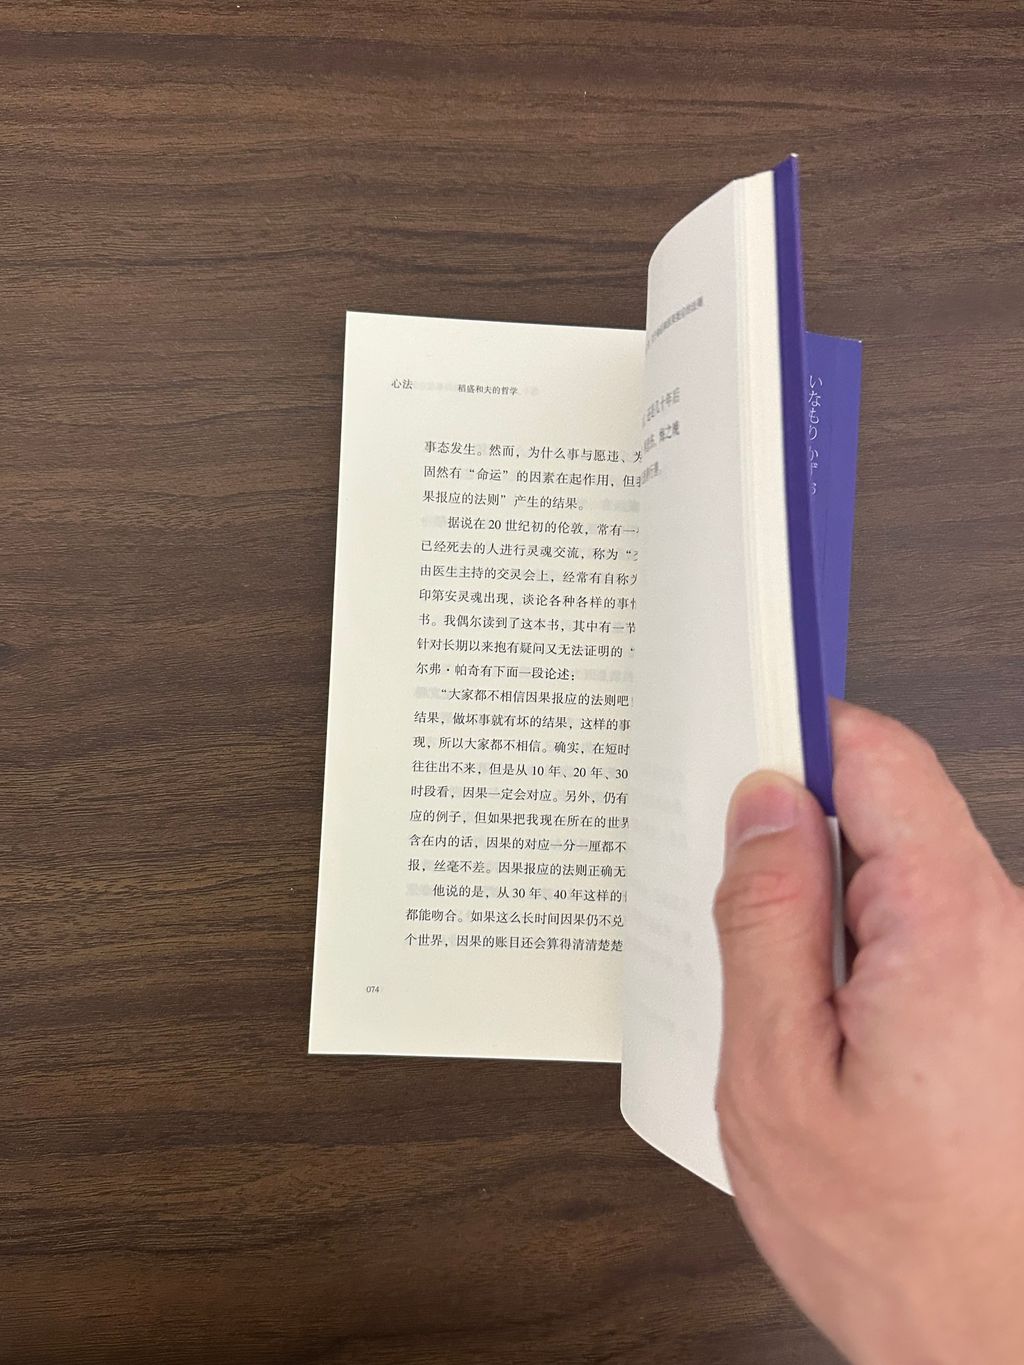 心法 稻盛和夫的哲学
事态发生。然而，为什么事与愿违、
固然有“命运”的因素在起作用，但
果报应的法则”产生的结果。
据说在 20 世纪初的伦敦，常有一
已经死去的人进行灵魂交流，称为“
由医生主持的交灵会上，经常有自称
印第安灵魂出现，谈论各种各样的事
书。我偶尔读到了这本书，其中有一节
针对长期以来抱有疑问又无法证明的“
尔弗·帕奇有下面一段论述：
“大家都不相信因果报应的法则吧
结果，做坏事就有坏的结果，这样的事
现，所以大家都不相信。确实，在短时
往往出不来，但是从 10 年、20 年、30
时段看，因果一定会对应。另外，仍有
应的例子，但如果把我现在所在的世界
含在内的话，因果的对应一分一厘都不
报，丝毫不差。因果报应的法则正确无
他说的是，从 30 年、40 年这样的
都能吻合。如果这么长时间因果仍不兑
个世界，因果的账目还会算得清清楚楚
074
还是几十年后
悔之晚
いなもり かずお